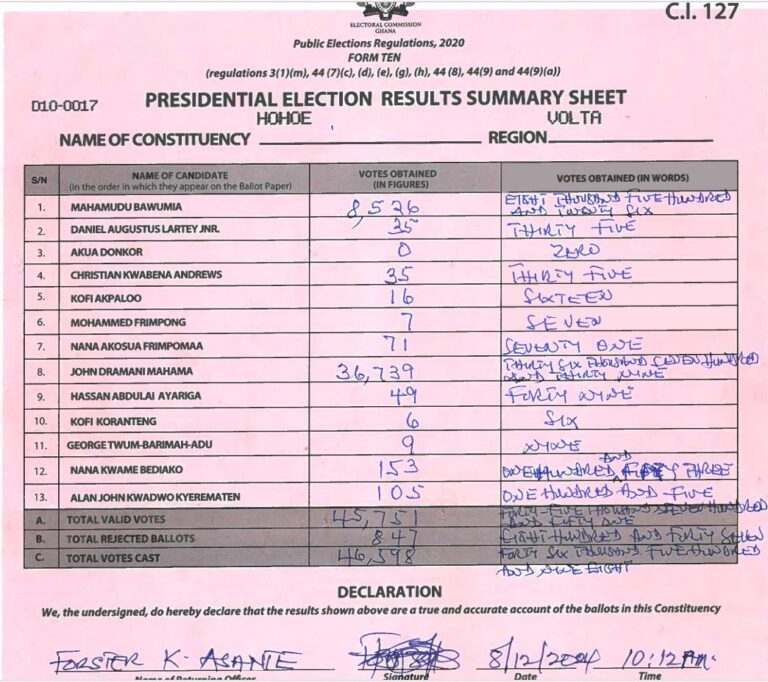 C.I. 127
ELECTORAL COMMISSION
GHANA
Public Elections Regulations, 2020
FORM TEN
(regulations 3(1)(m), 44 (7)(c), (d), (e), (g), (h), 44 (8), 44(9) and 44(9)(a))
D10-0017 PRESIDENTIAL ELECTION RESULTS SUMMARY SHEET
HOHOE VOLTA
NAME OF CONSTITUENCY REGION
S/N NAME OF CANDIDATE (in the order in which they appear on the Ballot Paper) VOTES OBTAINED (IN FIGURES) VOTES OBTAINED (IN WORDS)
1. MAHAMUDU BAWUMIA 8,526 EIGHT THOUSAND FIVE HUNDRED AND TWENTY SIX
2. DANIEL AUGUSTUS LARTEY JNR. 35 THIRTY FIVE
3. AKUA DONKOR 0 ZERO
4. CHRISTIAN KWABENA ANDREWS 35 THIRTY FIVE
5. KOFI AKPALOO 16 SIXTEEN
6. MOHAMMED FRIMPONG 7 SEVEN
7. NANA AKOSUA FRIMPOMAA 71 SEVENTY ONE
8. JOHN DRAMANI MAHAMA 36,739 THIRTY SIX THOUSAND SEVEN HUNDRED AND THIRTY NINE
9. HASSAN ABDULAI AYARIGA 49 FORTY NINE
10. KOFI KORANTENG 6 SIX
11. GEORGE TWUM-BARIMAH-ADU 9 NINE
12. NANA KWAME BEDIAKO 153 ONE HUNDRED AND FIFTY THREE
13. ALAN JOHN KWADWO KYEREMATEN 105 ONE HUNDRED AND FIVE
A. TOTAL VALID VOTES 45,751 FORTY-FIVE THOUSAND SEVEN HUNDRED AND FIFTY ONE
B. TOTAL REJECTED BALLOTS 847 EIGHT HUNDRED AND FORTY SEVEN
C. TOTAL VOTES CAST 46,598 FORTY SIX THOUSAND FIVE HUNDRED AND EIGHT
DECLARATION
We, the undersigned, do hereby declare that the results shown above are a true and accurate account of the ballots in this Constituency
FORSTER K. ASANTE 8/12/2024 10:12 AM.
Name of Returning Officer Signature Date Time